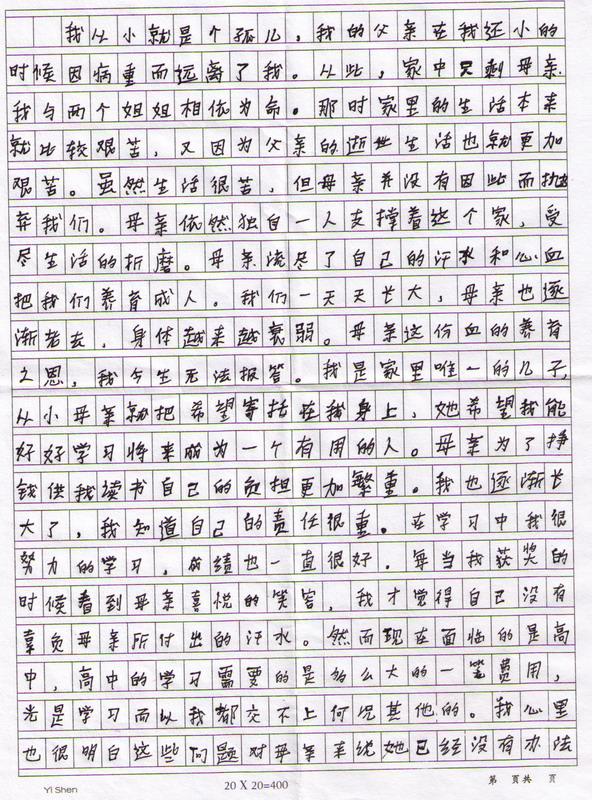 我从小就是个孤儿，我的父亲在我还小的
时候因病重而远离了我。从此，家中只剩母亲
我与两个姐姐相依为命。那时家里的生活本来
就比较艰苦，又因为父亲的逝世生活也就更加
艰苦。虽然生活很苦，但母亲并没有因此而抛
弃我们。母亲依然独自一人支撑着这个家，受
尽生活的折磨。母亲流尽了自己的汗水和心血
把我们养育成人。我们一天天长大，母亲也逐
渐老去，身体越来越衰弱。母亲这份血的养育
之恩，我今生无法报答。我是家里唯一的儿子，
从小母亲就把希望寄托在我身上，她希望我能
好好学习将来成为一个有用的人。母亲为了挣
钱供我读书自己的负担更加繁重。我也逐渐长
大了，我知道自己的责任很重。在学习中我很
努力的学习，成绩也一直很好。每当我获奖的
时候看到母亲喜悦的笑容，我才觉得自己没有
辜负母亲所付出的汗水。然而现在面临的是高
中，高中的学习需要的是多么大的一笔费用，
光是学习而以我都交不上何况其他的。我心里
也很明白这些问题对母亲来说她已经没有办法
Yi Shen 20 X 20=400 第 页共 页